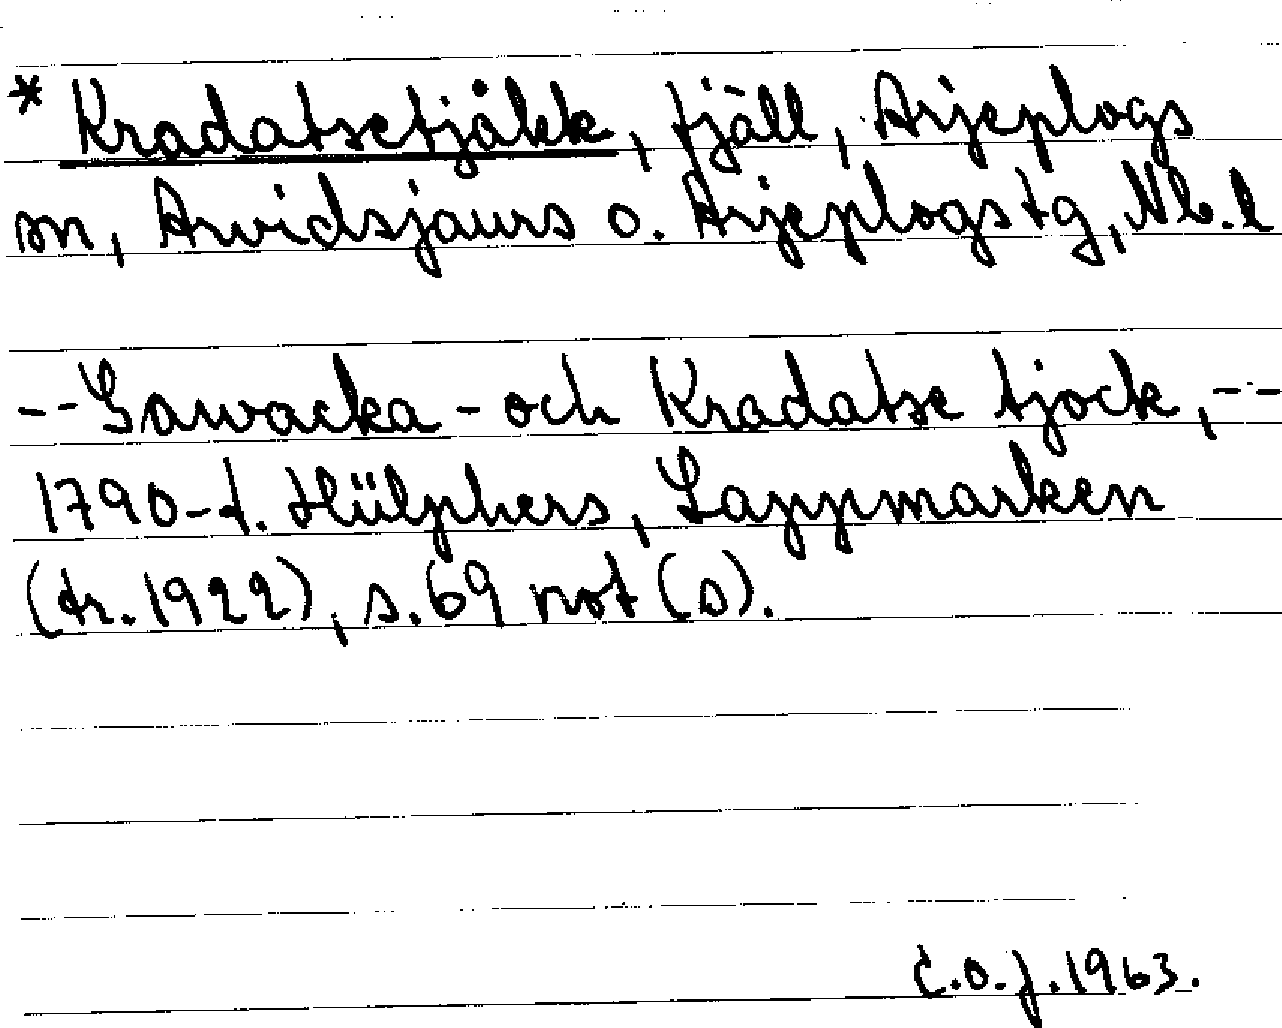 * Kradatsetjåkk, fjäll, Arjeplogs
sn, Arvidsjaurs o. Arjeplogs tg, Nb. l
-- Gawacka - och Kradatse tjock, --
1790-t. Hülphers, Lappmarken
(tr. 1922), s. 69 not (s).
C.O.J. 1963.